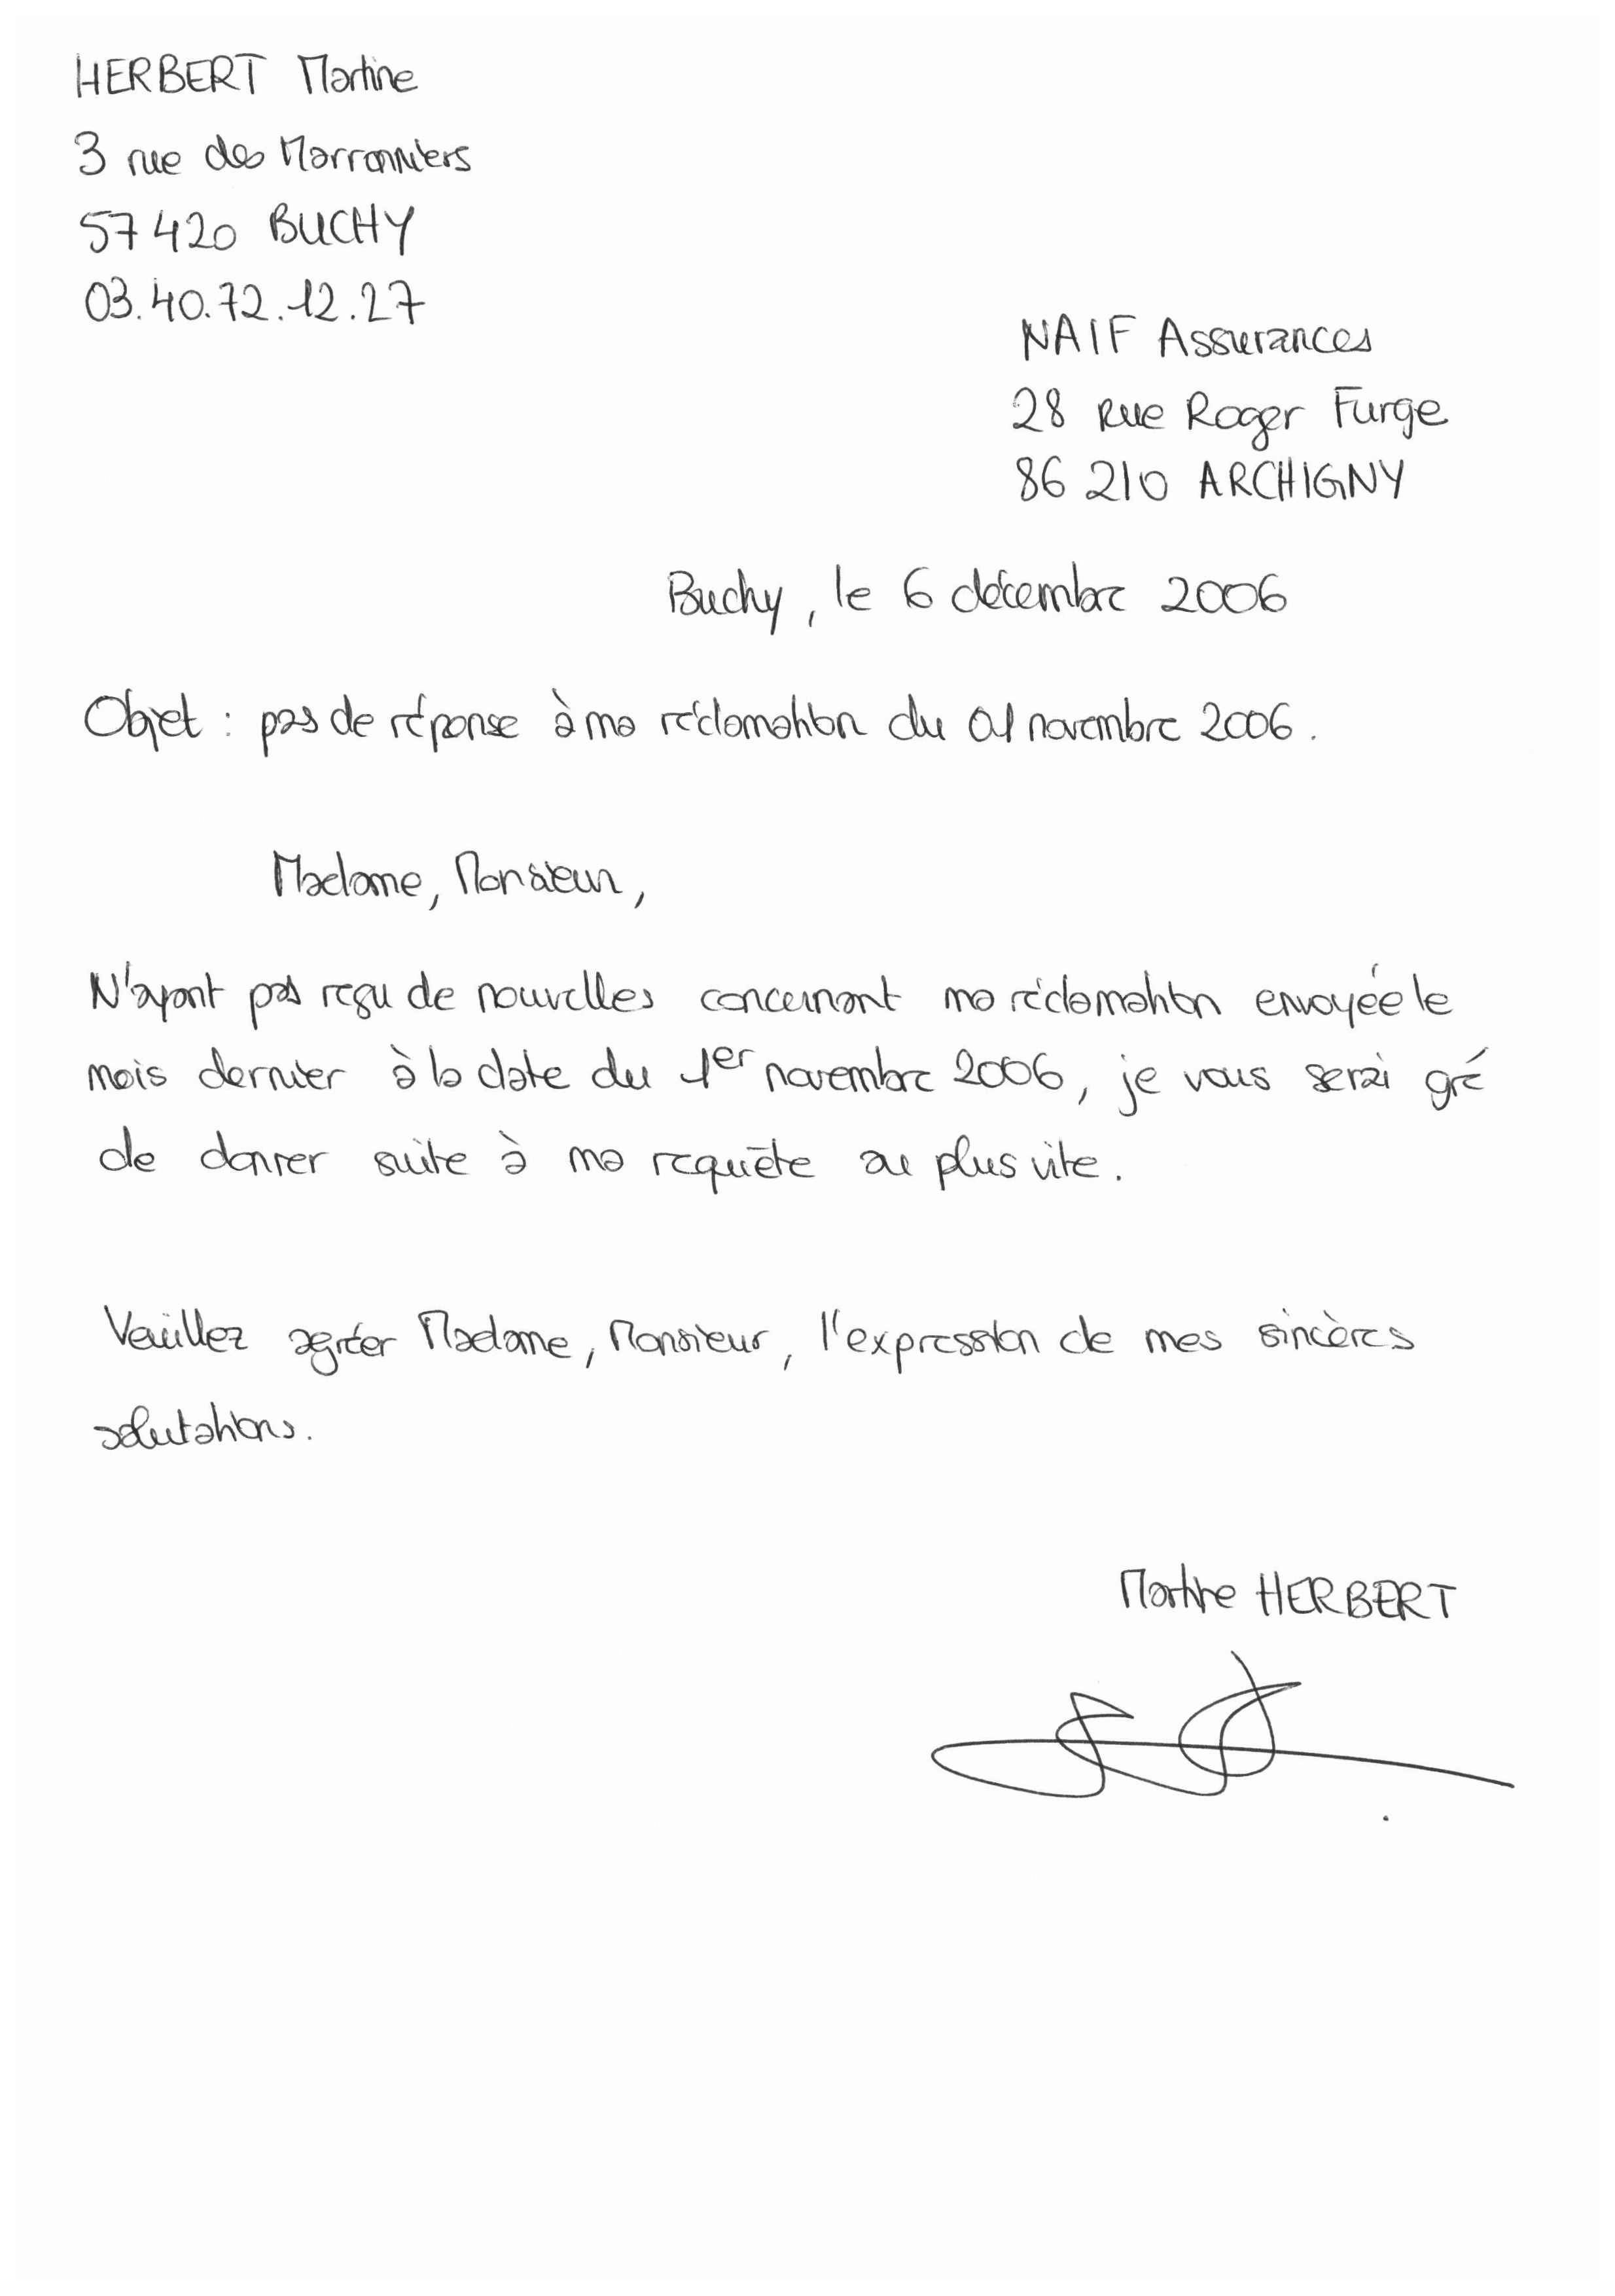 HERBERT Martine
3 rue des Marronniers
57420 BUCHY
03.40.72.12.27
NAIF Assurances
28 Rue Roger Furge
86 210 ARCHIGNY
Buchy, le 6 décembre 2006
Objet : pas de réponse à ma réclamation du 01 novembre 2006.
Madame, Monsieur,
N'ayant pas reçu de nouvelles concernant ma réclamation envoyée le
mois dernier à la date du 1er novembre 2006, je vous serai gré
de donner suite à ma requête au plus vite.
Veuillez agréer Madame, Monsieur, l'expression de mes sincères
salutations.
Martine HERBERT